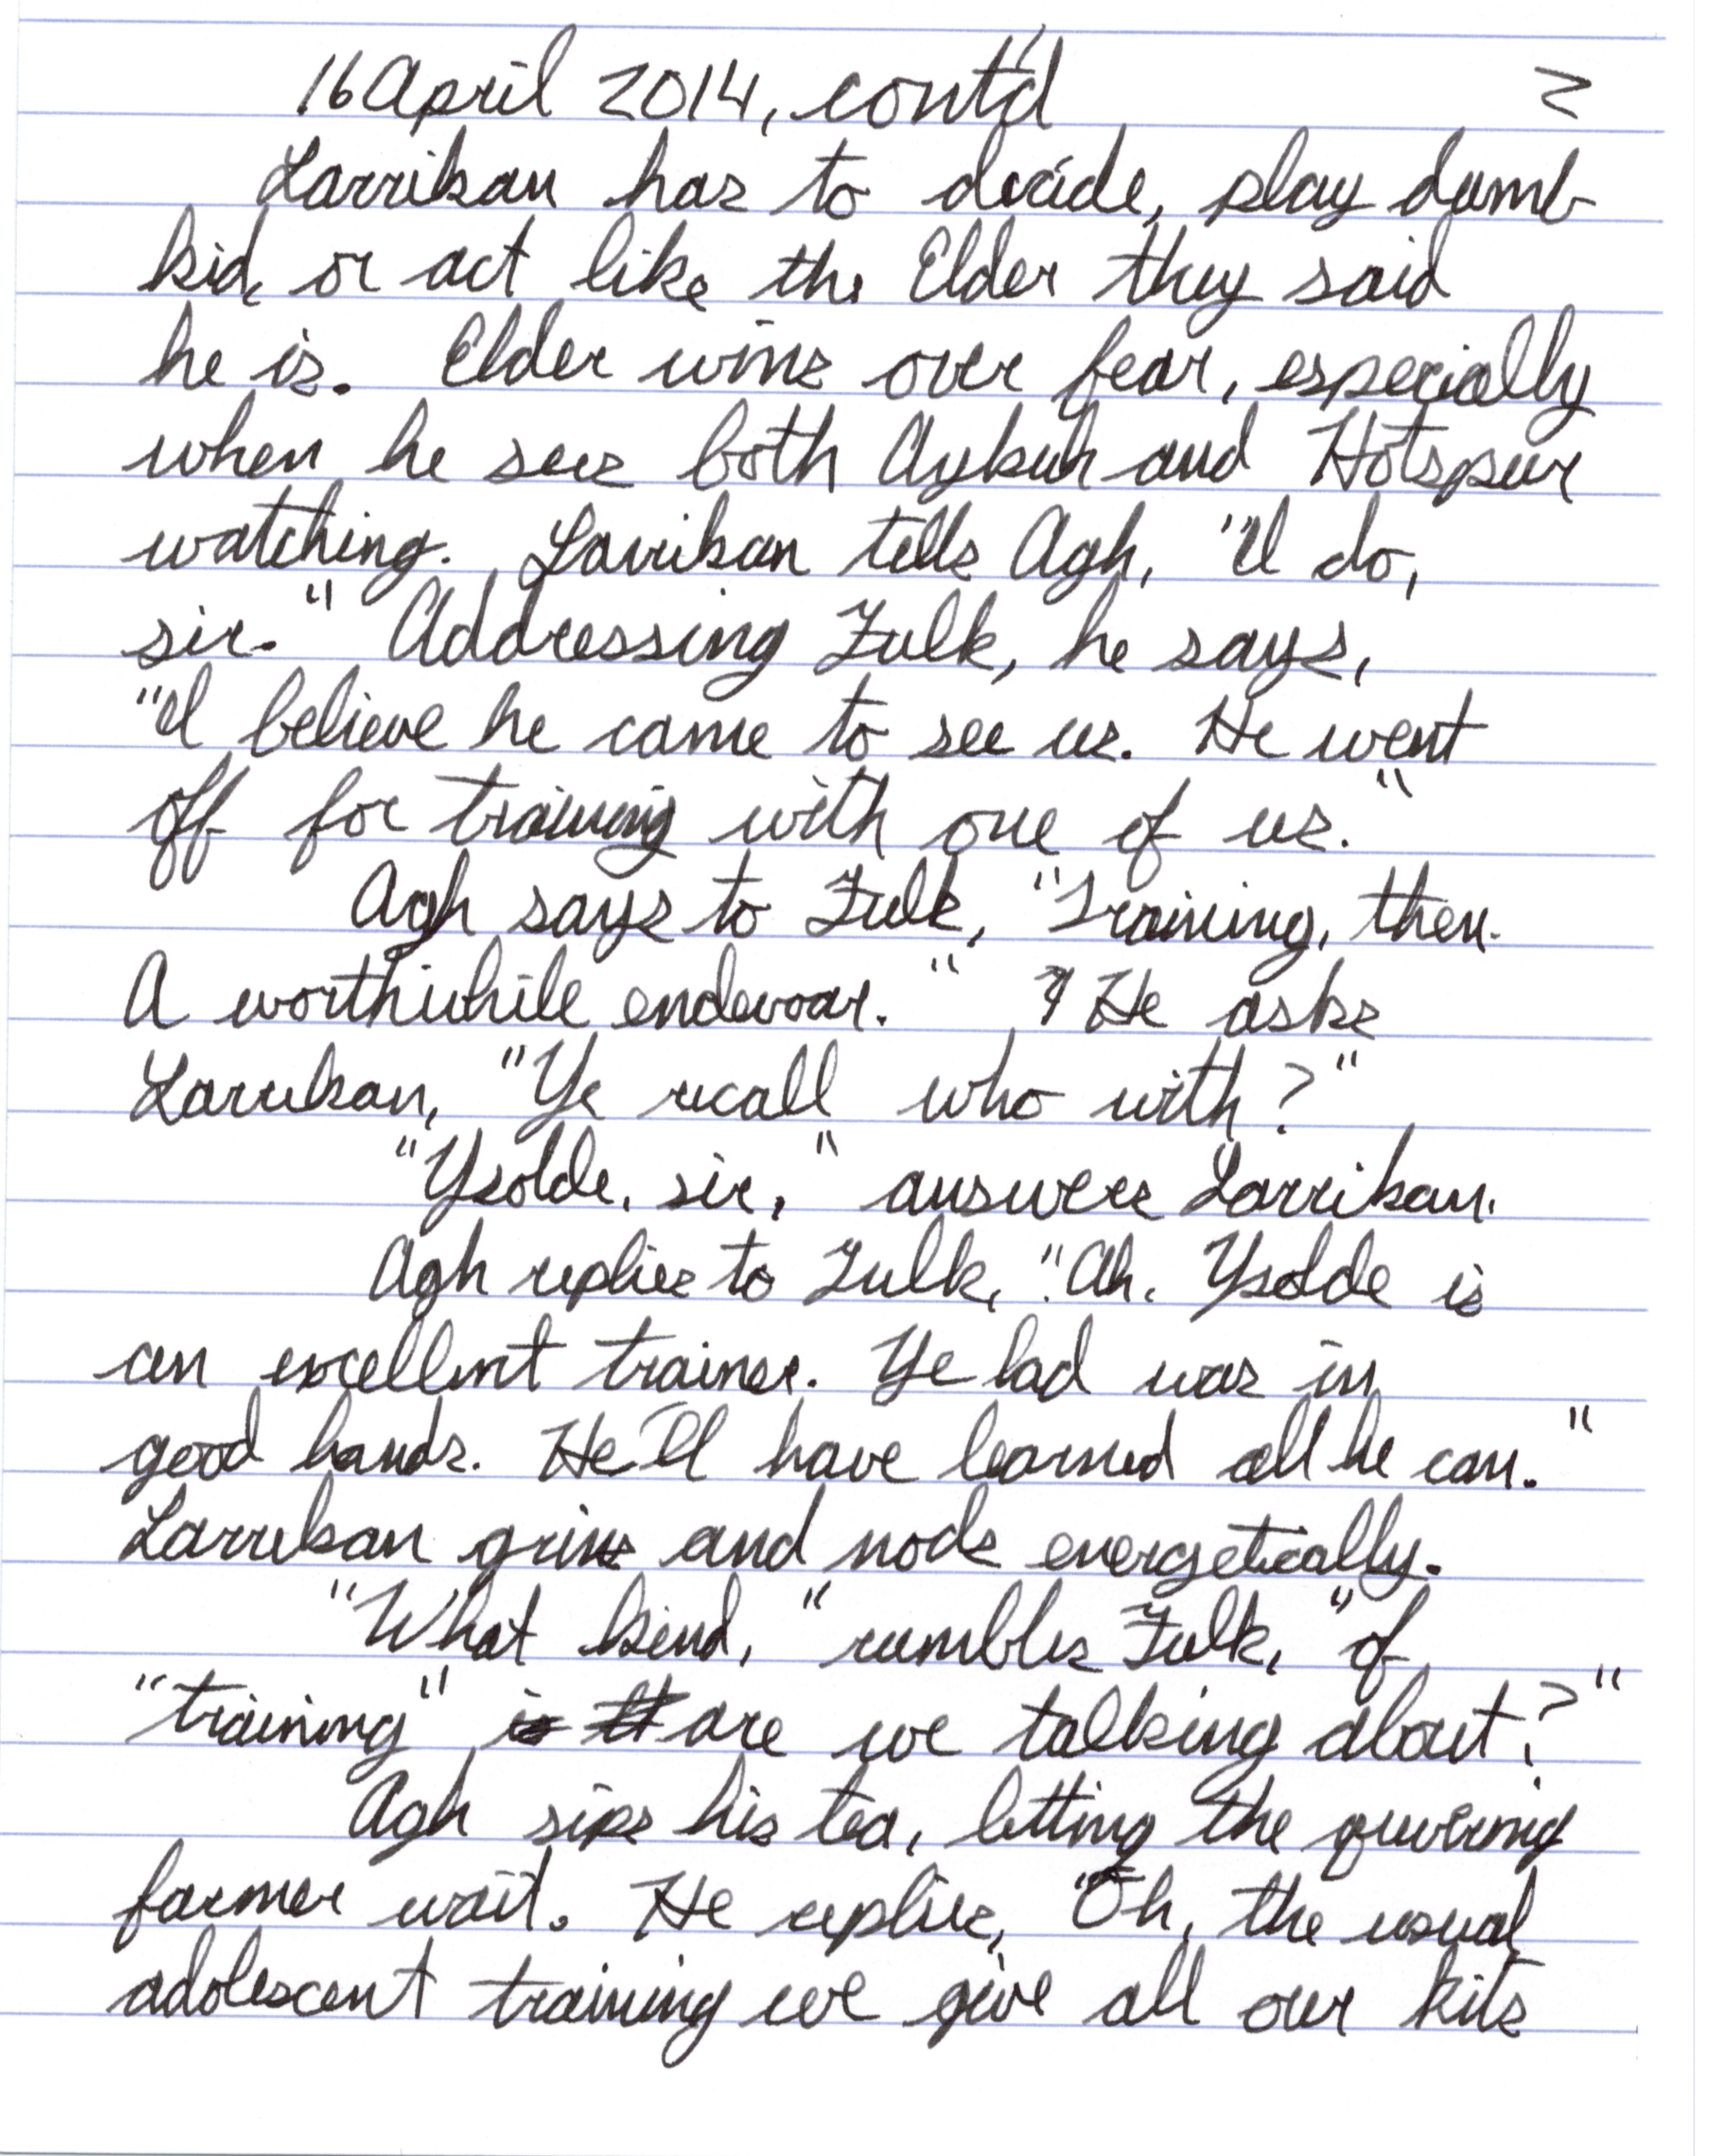 16 April 2014, cont'd 2
Larrikan has to decide, play dumb
kid, or act like the Elder they said
he is. Elder wins over fear, especially
when he sees both Aykuh and Hotspur
watching. Larrikan tells Agh, "I do,
sir." Addressing Fulk, he says,
"I believe he came to see us. He went
off for training with one of us."
Agh says to Fulk, "Training, then.
A worthwhile endevoar." He asks
Larrikan, "Ye recall who with?"
"Ysolde, sir," answers Larrikan.
Agh replies to Fulk, "Ah. Ysolde is
an excellent trainer. Ye lad was in
good hands. He'll have learned all he can."
Larrikan grins and nods energetically.
"What kind," rumbles Fulk, "of
"training" are we talking about?"
Agh sips his tea, letting the quivering
farmer wait. He replies, "Oh, the usual
adolescent training we give all our kits